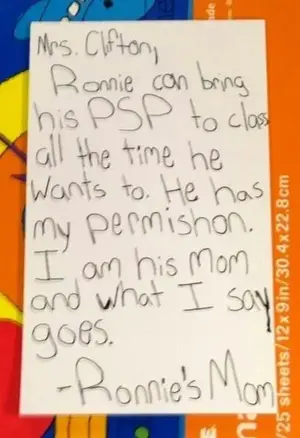 Mrs. Clifton,
Ronnie can bring
his PSP to class
all the time he
wants to. He has
my permishon.
I am his Mom
and what I say
goes.
-Ronnie's Mom
/25 sheets/12x9in/30.4x22.8cm